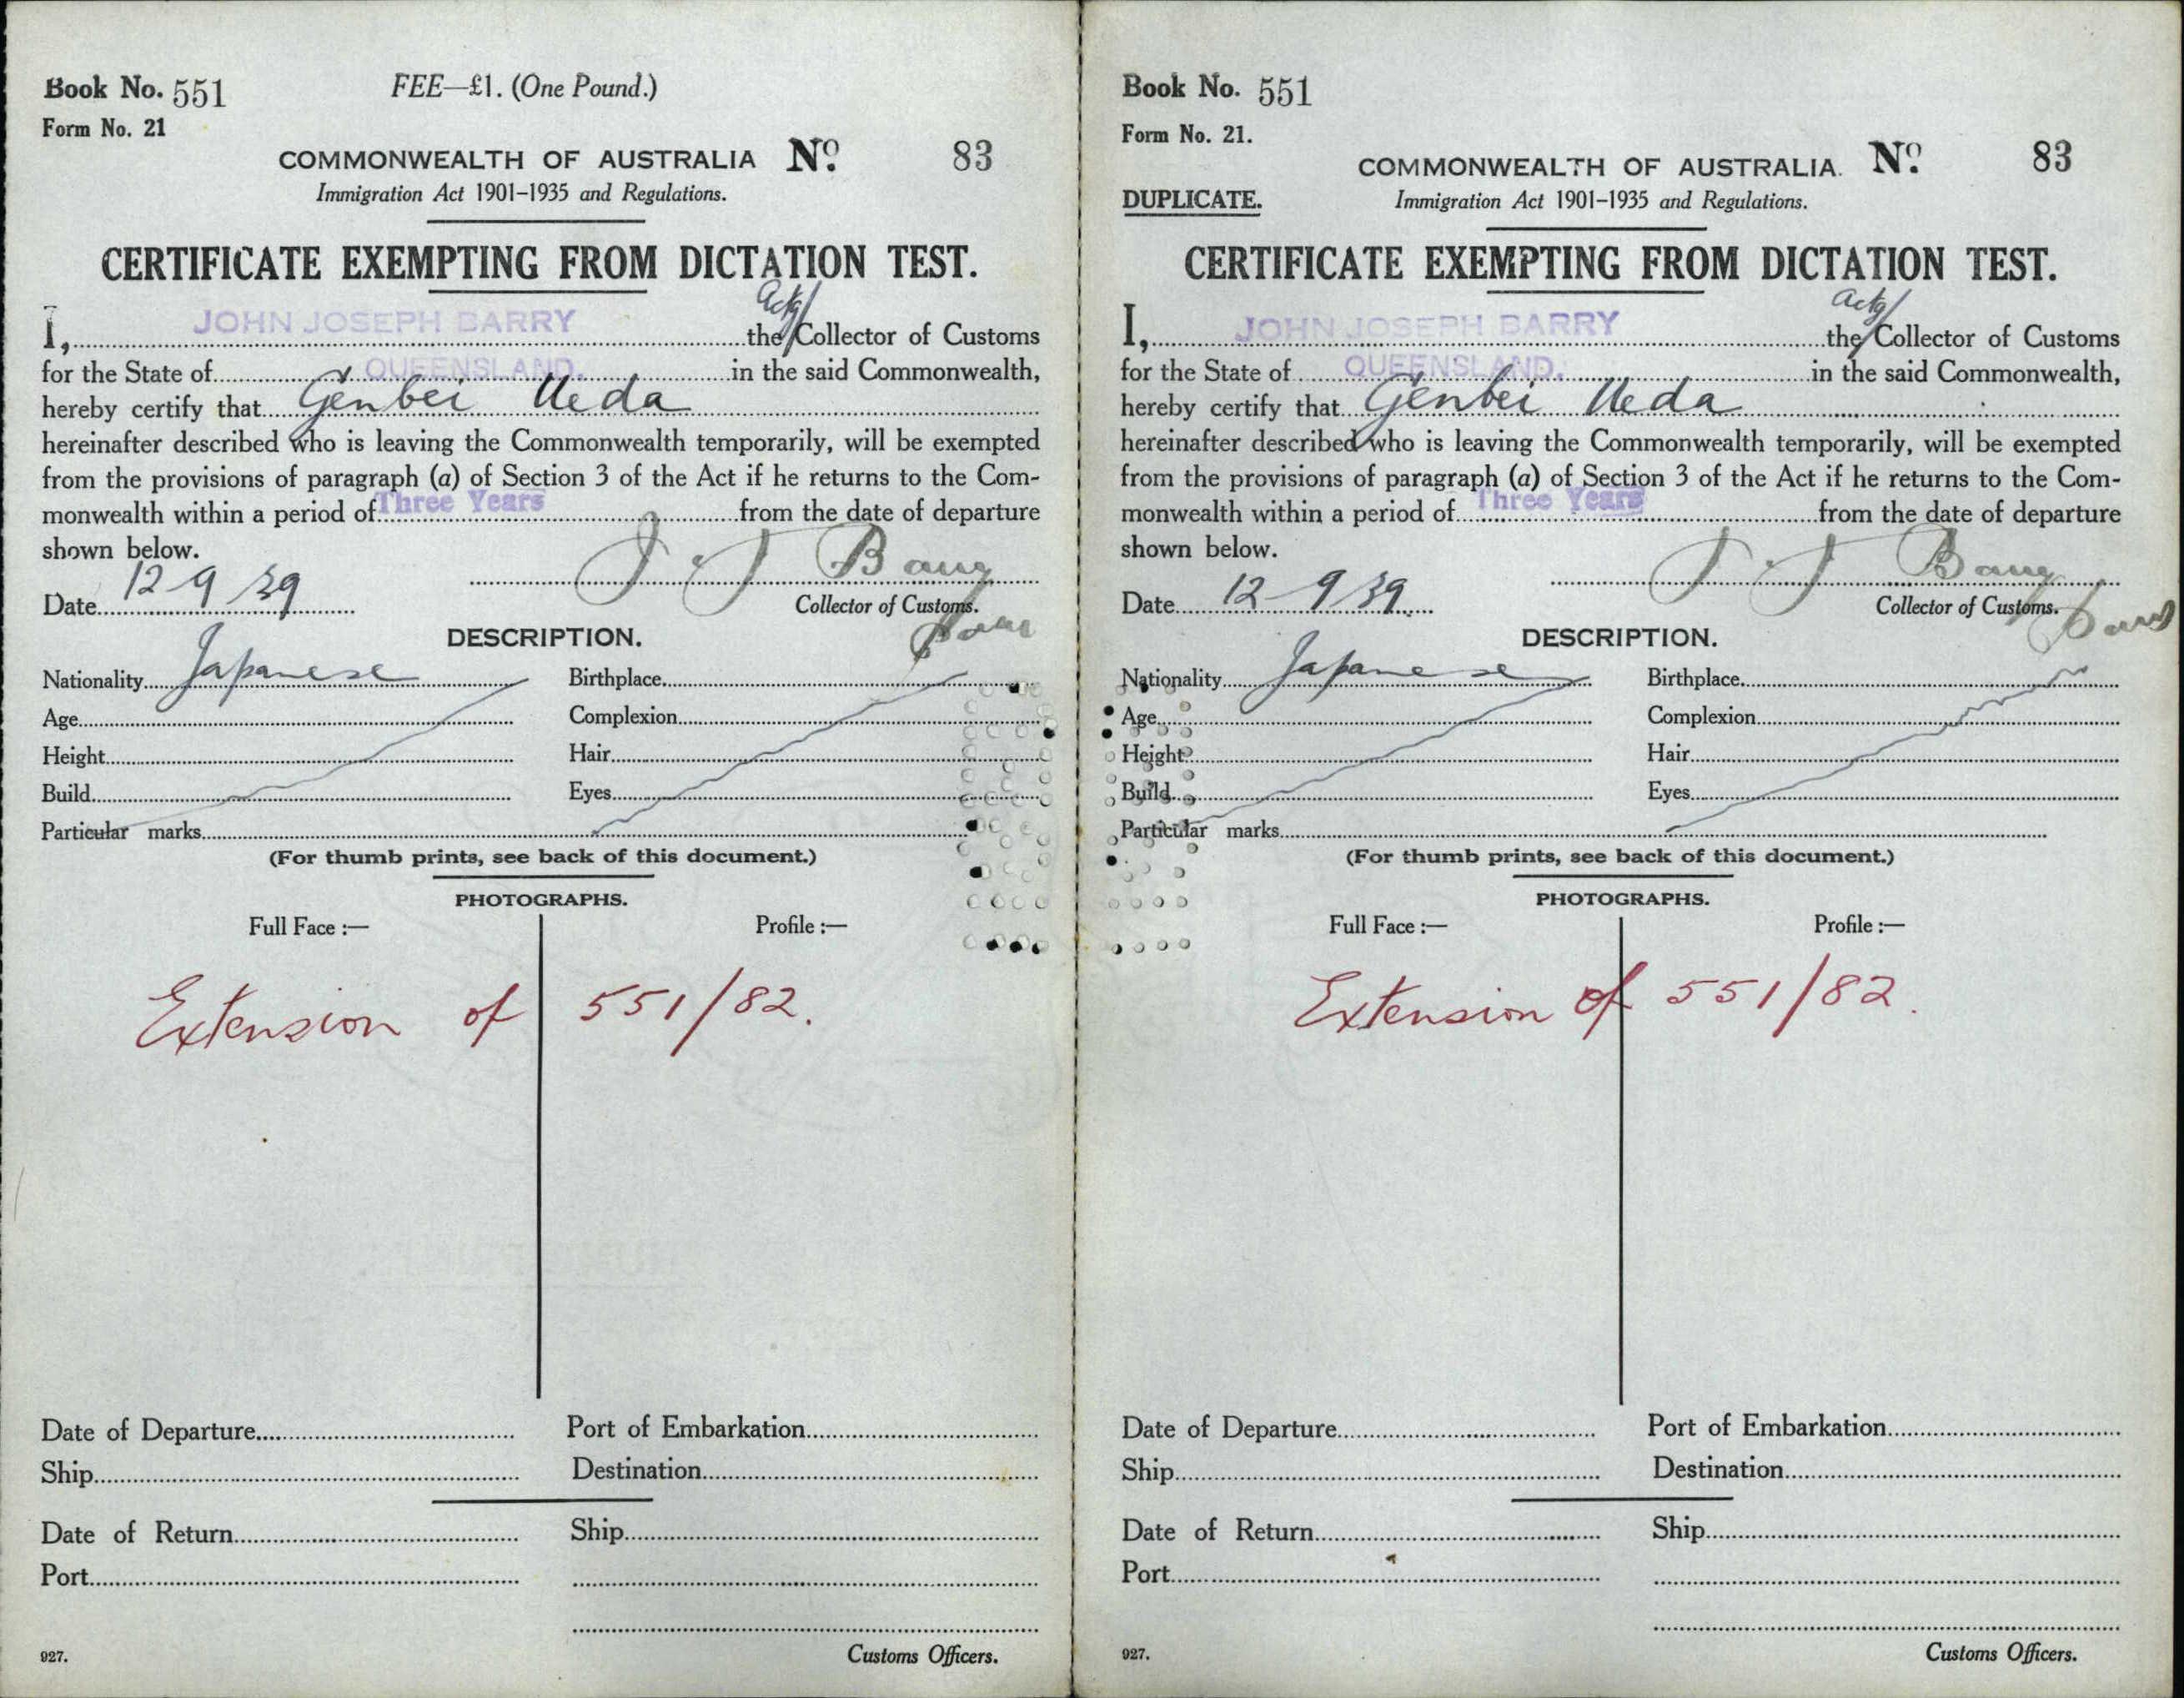 Book No. 551
FEE—£1. (One Pound.)
Form No. 21
COMMONWEALTH OF AUSTRALIA No. 83
Immigration Act 1901–1935 and Regulations.
CERTIFICATE EXEMPTING FROM DICTATION TEST.
I, JOHN JOSEPH BARRY the Actg/ Collector of Customs
for the State of QUEENSLAND. in the said Commonwealth,
hereby certify that Genbei Ueda
hereinafter described who is leaving the Commonwealth temporarily, will be exempted
from the provisions of paragraph (a) of Section 3 of the Act if he returns to the Com-
monwealth within a period of Three Years from the date of departure
shown below.
J J Barry
Date 12-9/39
Collector of Customs.
DESCRIPTION.
Nationality Japanese Birthplace
Age Complexion
Height Hair
Build Eyes
Particular marks
(For thumb prints, see back of this document.)
PHOTOGRAPHS.
Full Face :— Profile :—
Extension of 551/82.
Date of Departure Port of Embarkation
Ship Destination
Date of Return Ship
Port
927. Customs Officers.
Book No. 551
Form No. 21.
COMMONWEALTH OF AUSTRALIA. No. 83
DUPLICATE. Immigration Act 1901–1935 and Regulations.
CERTIFICATE EXEMPTING FROM DICTATION TEST.
I, JOHN JOSEPH BARRY the actg/ Collector of Customs
for the State of QUEENSLAND. in the said Commonwealth,
hereby certify that Genbei Ueda
hereinafter described who is leaving the Commonwealth temporarily, will be exempted
from the provisions of paragraph (a) of Section 3 of the Act if he returns to the Com-
monwealth within a period of Three Years from the date of departure
shown below.
J J Barry
Date 12-9/39
Collector of Customs.
DESCRIPTION.
Nationality Japanese Birthplace
Age Complexion
Height Hair
Build Eyes
Particular marks
(For thumb prints, see back of this document.)
PHOTOGRAPHS.
Full Face :— Profile :—
Extension of 551/82.
Date of Departure Port of Embarkation
Ship Destination
Date of Return Ship
Port
927. Customs Officers.